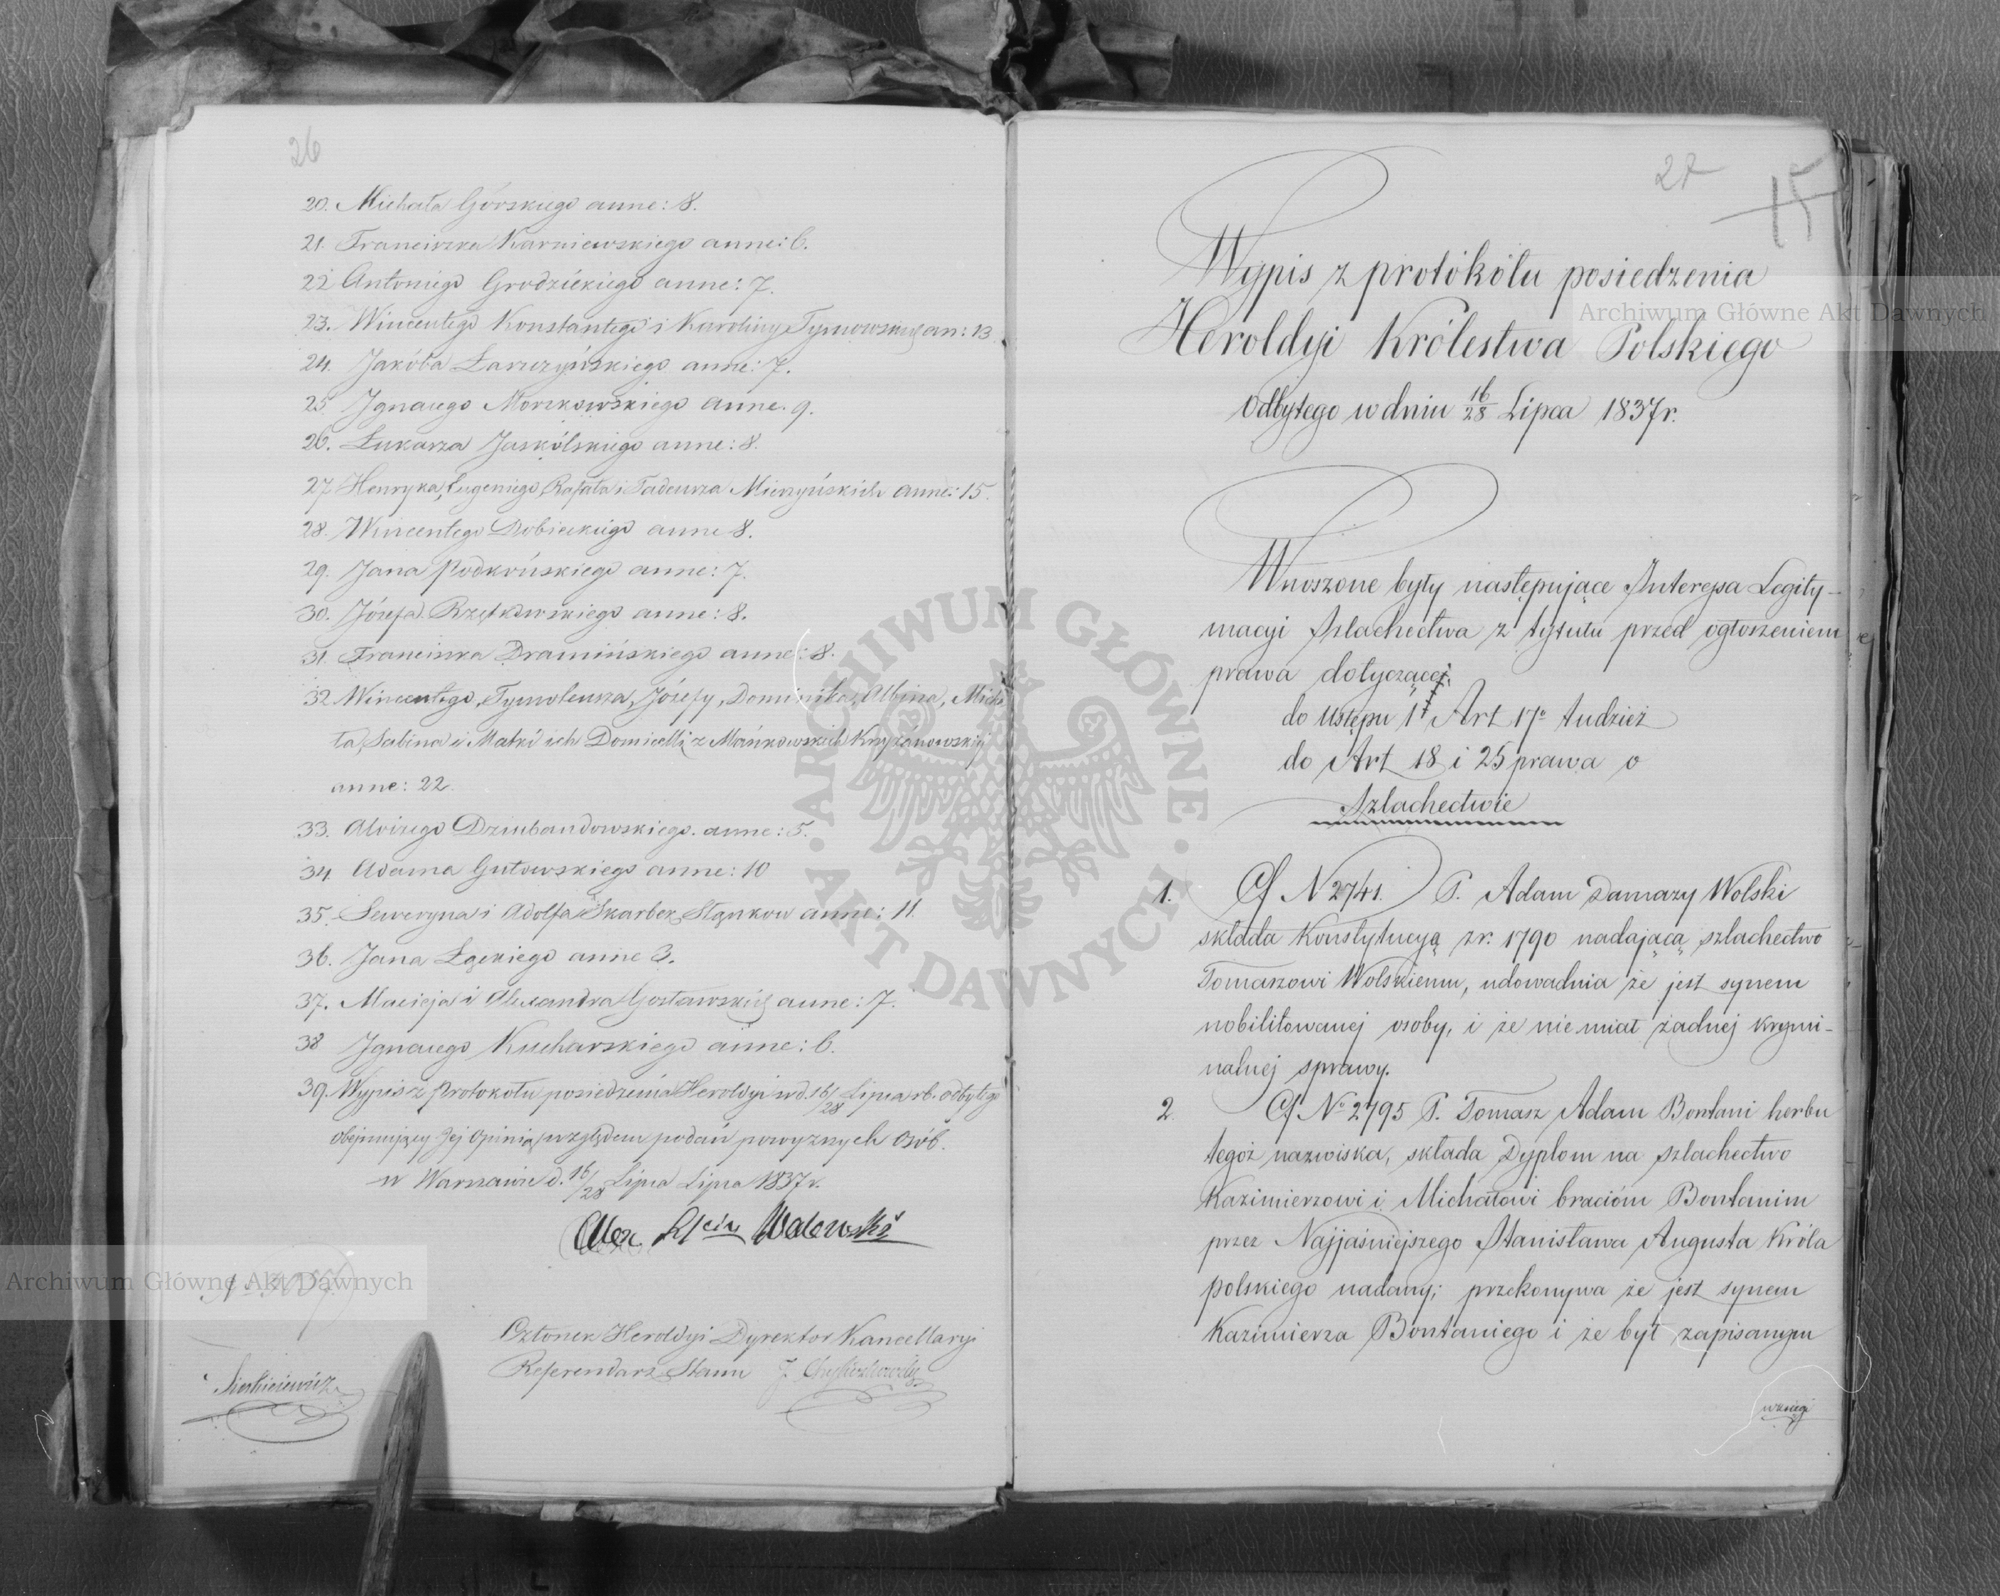 26
20. Michała Górskiego anne: 8.
21. Franciszka Karniewskiego anne: 6.
22 Antoniego Grodzickiego anne: 7.
23. Wincentego Konstantego i Karoliny Tymowskich an: 13.
24. Jakóba Łaszczyńskiego anne: 7.
25 Ignacego Morzkowskiego anne. 9.
26. Łukasza Jaskólskiego anne: 8.
27 Henryka, Eugeniego, Rafała i Tadeusza Mierzyńskich anne: 15.
28. Wincentego Dobieckiego anne 8.
29. Jana Podkońskiego anne: 7.
30. Józefa Rzętkowskiego anne: 8.
31 Franciszka Dramińskiego anne: 8.
32 Wincentego, Tymoleusza, Józefy, Dominika, Albina, Micha
ła, Sabina i Matki ich Domicelli z Mańkowskich Krzyżanowskiej
anne: 22.
33. Aloizego Dziubandowskiego. anne: 5.
34 Adama Gutowskiego anne: 10
35. Seweryna i Adolfa Skarbek Sląnkow anne: 11.
36. Jana Łąckiego anne 3.
37. Macieja i Alexandra Gosławskich anne: 7.
38 Ignacego Kucharskiego anne: 6.
39. Wypis z Protokołu posiedzenia Heroldyi w d. 16/28 Lipca rb. odbytego
obejmujący Jej Opinią względem podań powyższych Osób.
w Warszawie d. 16/28 Lipca Lipca 1837 r.
Alex Walewski
Członek Heroldyi Dyrektor Kancellaryi
Referendarz Stanu J.
27
15
Wypis z protókółu posiedzenia
Heroldyi Królestwa Polskiego
odbytego w dniu 16/28 Lipca 1837 r.
Wnoszone były następujące Interesa Legity-
macyi Szlachectwa z tytułu przed ogłoszeniem
prawa dotyczące:
do Ustępu 1 Art 17º tudzież
do Art 18 i 25 prawa o
Szlachectwie
1. Cf N 2741. P. Adam Damazy Wolski
składa Konstytucyą z r. 1790 nadającą szlachectwo
Tomaszowi Wolskiemu, udowadnia że jest synem
nobilitowanej osoby, i że nie miał żadnej krymi-
nalnej sprawy.
2 Cf Nº 2795 P. Tomasz Adam Bontani herbu
tegoż nazwiska, składa Dyplom na szlachectwo
Kazimierzowi i Michałowi braciom Bontanim
przez Najjaśniejszego Stanisława Augusta Króla
polskiego nadany; przekonywa że jest synem
Kazimierza Bontaniego i że był zapisanym
w księgi
Archiwum Główne Akt Dawnych
Archiwum Główne Akt Dawnych
ARCHIWUM GŁÓWNE · AKT DAWNYCH ·